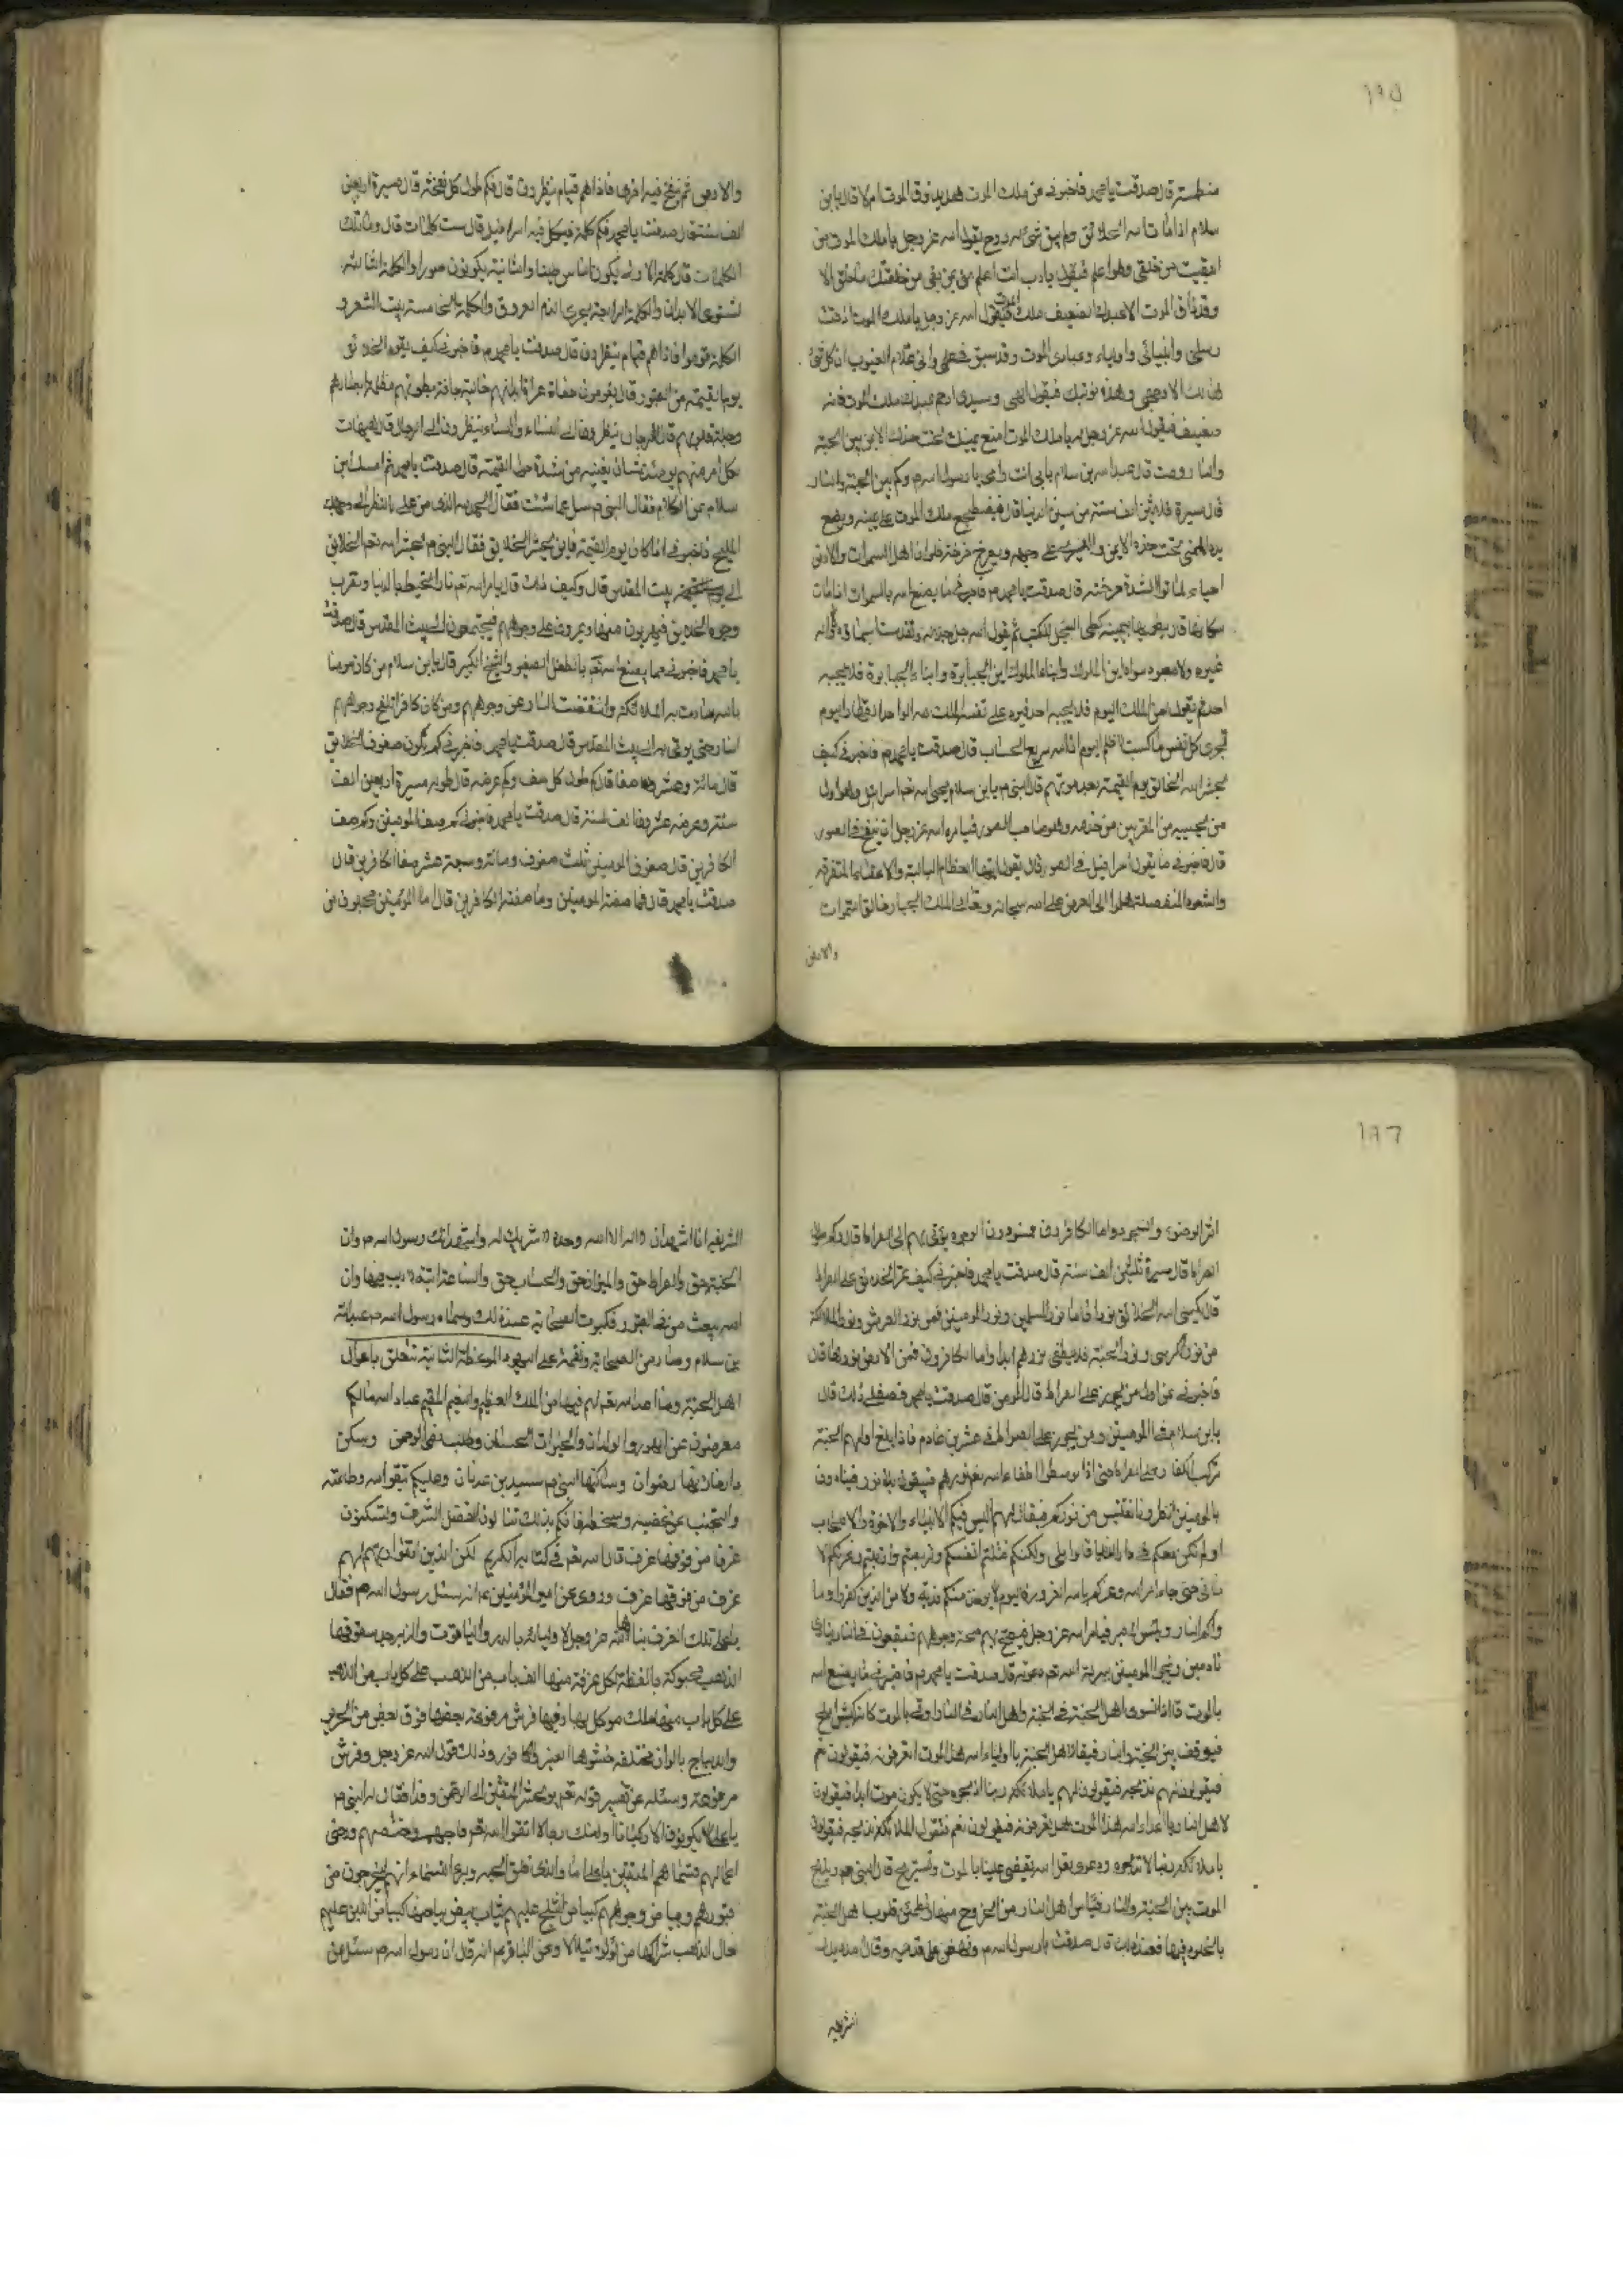 ١٩٥
منطستر قال صدقت يا محمد فاخبرني عن ملك الموت هل يذوق الموت ام لا قال يابن
سلام اذا امات الله الخلائق ولم يبق شئ له روح يقول الله عز وجل يا ملك الموت من
ابقيت من خلقي وهو اعلم فيقول يا رب انت اعلم مني بمن بقي من خلقك ما خلق الا
وقد ذاق الموت الا عبدك الضعيف ملك الموت فيقول الله عز وجل يا ملك الموت اذقت
رسلي وانبيائي واوليائي وعبادي الموت وقد سبق في علمي واني علام الغيوب ان كل شئ
هالك الا وجهي وهذه نوبتك فيقول الهي وسيدي ارحم عبدك ملك الموت فانه
ضعيف فيقول الله عز وجل له يا ملك الموت ضع يمينك تحت خدك الايمن بين الجنة
والنار ومت قال عبد الله بن سلام بابي انت وامي يا رسول الله وكم بين الجنة والنار
قال مسيرة ثلاثين الف سنة من سنين الدنيا قال فيضطجع ملك الموت على يمينه ويضع
يده اليمنى تحت خده الايمن واليسرى على وجهه ويصرخ صرخة فلو ان اهل السموات والارض
احياء لماتوا لشدة صرخته قال صدقت يا محمد فاخبرني ما يصنع الله بالسموات اذا مات
سكانها قال يطويها بيمينه كطي السجل للكتب ثم يقول الله جل جلاله وتقدست اسماؤه ولا اله
غيره ولا معبود سواه اين الملوك وابناء الملوك اين الجبابرة وابناء الجبابرة فلا يجيبه
احد ثم يقول لمن الملك اليوم فلا يجيبه احد فيرد على نفسه الملك لله الواحد القهار اليوم
تجزى كل نفس ما كسبت لا ظلم اليوم ان الله سريع الحساب قال صدقت يا محمد فاخبرني كيف
يحشر الله الخلائق يوم القيمة بعد موتهم قال النبي ص يابن سلام يحيي الله تعم اسرافيل وهو اول
من يحييه من المقربين من خدمه وهو صاحب الصور فيامره الله عز وجل ان ينفخ في الصور
قال فاخبرني ما يقول اسرافيل في الصور قال يقول ايتها العظام البالية والاعضاء المتفرقة
والشعور المنفصلة هلموا الى العرض على الله سبحانه وتعالى الملك الجبار خالق السموات
والارض
والارض ثم ينفخ فيه اخرى فاذا هم قيام ينظرون قال فكم طول كل نفخة قال مسيرة اربعين
الف سنة قال صدقت يا محمد فكم كلمة يتكلم فيه اسرافيل قال ست كلمات قال وما تلك
الكلمات قال كلمة الاولى يكون الناس طينا والثانية يكونون صورا والكلمة الثالثة
تستوي الابدان والكلمة الرابعة يجري الدم العروق والكلمة الخامسة ينبت الشعر و
الكلمة قوموا فاذا هم قيام ينظرون قال صدقت يا محمد فاخبرني كيف يقوم الخلائق
يوم القيمة من القبور قال يقومون حفاة عراة ابدانهم خالية جافة بطونهم مظلمة ابصارهم
وجلة قلوبهم قال الرجال ينظرون الى النساء والنساء ينظرون الى الرجال قال هيهات
لكل امرء منهم يومئذ شان يغنيه من شدة هول القيمة قال صدقت يا محمد ثم امسك ابن
سلام عن الكلام فقال النبي ص سل عما شئت فقال الحمد لله الذي من علي بالنظر الى وجهك
المليح فاخبرني اذا كان يوم القيمة فاين يحشر الخلايق فقال النبي ص يحشر الله تعم الخلائق
الى بيت المقدس قال وكيف ذلك قال يامر الله تعم نارا فتحيط بالدنيا وتضرب
وجوه الخلايق فيهربون منها ويمرون على وجوههم فيجتمعون الى بيت المقدس قال صدقت
يا محمد فاخبرني عما يصنع الله تعم بالطفل الصغير والشيخ الكبير قال يابن سلام من كان مومنا
بالله سارت به الملائكة وانقضت النار عن وجوههم ومن كان كافرا تلفح وجوههم
النار حتى يؤتى به الى بيت المقدس قال صدقت يا محمد فاخبرني كم يكون صفوف الخلائق
قال مائة وعشرون صفا قال كم طول كل صف وكم عرضه قال طوله مسيرة اربعين الف
سنة وعرضه عشرون الف سنة قال صدقت يا محمد فاخبرني كم صف المومنين وكم صف
الكافرين قال صفوف المومنين ثلث صفوف ومائة وسبعة عشر صفا الكافرين قال
صدقت يا محمد قال فما صفة المومنين وما صفة الكافرين قال اما المومنين محجبون من
١٩٦
اثر الوضوء والسجود واما الكافرون مسودون الوجوه يؤتى بهم الى الصراط قال وكم طول
الصراط قال مسيرة ثلثين الف سنة قال صدقت يا محمد فاخبرني كيف يمر الخلائق على الصراط
قال يكسي الله الخلائق نورا فاما نور المسلمين ونور المومنين فمن نور العرش ونور الملائكة
من نور الكرسي ونور الجنة فلا يطفى نورهم ابدا واما الكافرون فمن الارض نورها قال
فاخبرني عن اول من يجوز على الصراط قال المومن قال صدقت يا محمد فصف لي ذلك قال
يابن سلام في المومنين من يجوز على الصراط في عشرين عاما فاذا بلغ اولهم الجنة
تركب الكفار على الصراط حتى اذا توسطوا اطفاء الله تعم نورهم فيبقون بلا نور فينادون
بالمومنين انظرونا نقتبس من نوركم فيقال لهم اليس فيكم الانبياء والاخوة والاصحاب
اولم نكن معكم في دار الدنيا قالوا بلى ولكنكم فتنتم انفسكم وتربصتم وارتبتم وغرتكم الا
ماني حتى جاء امر الله وغركم بالله الغرور فاليوم لا يوخذ منكم فدية ولا من الذين كفروا وما
واكم النار وبئس المصير فيامر الله عز وجل فيصيح بهم صيحة وجوههم فيقعون في النار
نادمين وينجي المومنين ببركة الله تعم وعونه قال صدقت يا محمد فاخبرني ما يصنع الله
بالموت قال اذا استوى اهل الجنة في الجنة واهل النار في النار اوتي بالموت كانه كبش املح
فيوقف بين الجنة والنار فيقال لاهل الجنة يا اولياء الله هذا الموت اتعرفونه فيقولون نعم
فيقولون لهم نذبحه فيقولون لهم يا ملائكة ربنا اذبحوه حتى لا يكون موت ابدا فيقولون
لاهل النار يا اعداء الله هذا الموت هل تعرفونه فيقولون نعم فتقول الملائكة نذبحه فيقولون
يا ملائكة ربنا لا تذبحوه ودعوه لعل الله يقضي علينا بالموت ونستريح قال النبي ص ويذبح
الموت بين الجنة والنار فييأس اهل النار من الخروج منها وتطمئن قلوب اهل الجنة
بالخلود فيها فعند ذلك قال صدقت يا رسول الله ونهض على قدميه وقال مد يدك
الشريفة
الشريفة انا اشهد ان لا اله الا الله وحده لا شريك له واشهد انك رسول الله ص وان
الجنة حق والصراط حق والميزان حق والحساب حق والساعة اتية لا ريب فيها وان
الله يبعث من في القبور فكبرت الصحابة عند ذلك وسماه رسول الله ص عبد الله
بن سلام وصار من الصحابة ونقمة على اليهود الموعظة الثانية تتعلق باحوال
اهل الجنة وما اعد الله تعم لهم فيها من الملك العظيم والنعيم المقيم عباد الله مالكم
معرضون عن الحور والولدان والخيرات الحسان وطلب رضى الرحمن وسكن
دار خازنها رضوان وساكنها النبي ص سيد بني عدنان وعليكم بتقوى الله وطاعته
والتجنب عن غضبه وسخطه فانكم بذلك تنالون الفضل الشرف وتسكنون
غرفا من فوقها غرف قال الله تعم في كتابه الكريم لكن الذين اتقوا ربهم لهم
غرف من فوقها غرف وروي عن امير المومنين ع انه سئل رسول الله ص فقال
يا علي تلك الغرف بناها الله عز وجل لاوليائه بالدر والياقوت والزبرجد سقوفها
الذهب محبوكة بالفضة لكل غرفة منها الف باب من الذهب على كل باب من الذهب
على كل باب منها ملك موكل بها وفيها فرش مرفوعة بعضها فوق بعض من الحرير
والديباج بالوان مختلفة حشوها العنبر والكافور وذلك قول الله عز وجل وفرش
مرفوعة وسئله عن تفسير قوله تعم يوم نحشر المتقين الى الرحمن وفدا فقال له النبي ص
يا علي لا يكون الوفد الا ركبانا اولئك رجال اتقوا الله تعم فاحبهم واختصهم ورضي
اعمالهم فسماهم المتقين يا علي اما والذي فلق الحبة وبرء النسمة انهم ليخرجون من
قبورهم وبياض وجوههم كبياض الثلج عليهم ثياب بيض بياضها كبياض اللبن عليهم
نعال الذهب شراكها من لؤلؤ يتلالا وعن الباقر ع انه قال ان رسول الله ص سئل عن